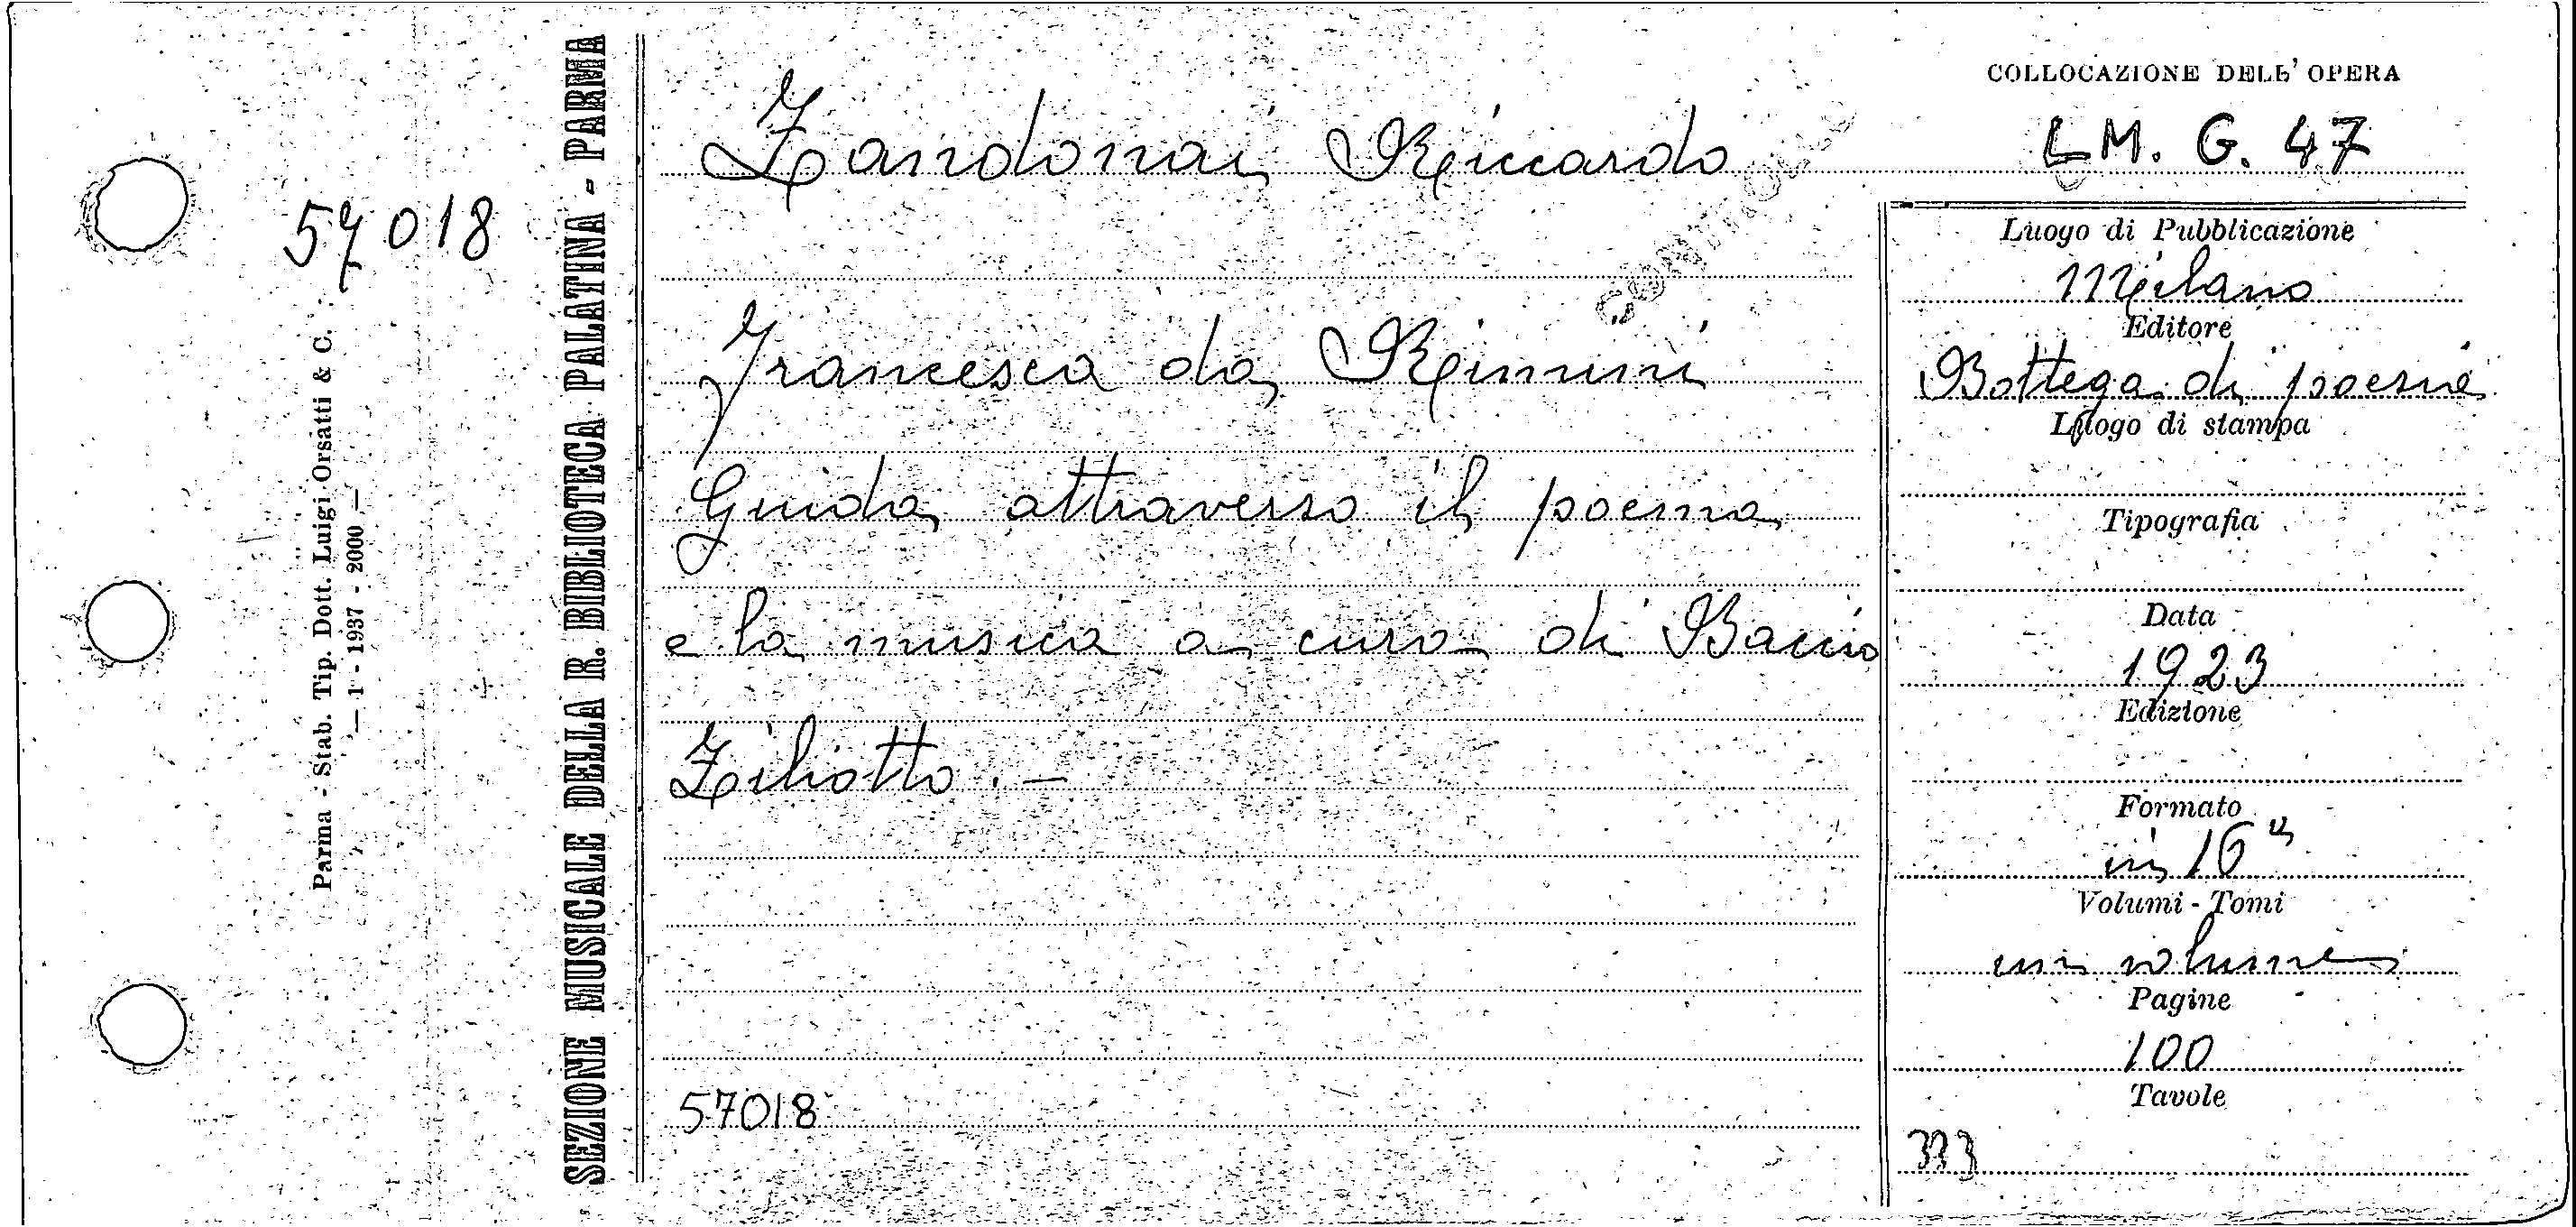 57018
Parma - Stab. Tip. Dott. Luigi Orsatti & C.
— 1 - 1937 - 2000 —
SEZIONE MUSICALE DELLA R. BIBLIOTECA PALATINA - PARMA
Zandonai Riccardo
Francesca da Rimini
Guida attraverso il poema
e la musica a cura di Baccio
Ziliotto. —
57018
COLLOCAZIONE DELL' OPERA
LM. G. 47
Luogo di Pubblicazione
Milano
Editore
Bottega di poesia
Luogo di stampa
Tipografia
Data
1923
Edizione
Formato
in 16°
Volumi - Tomi
un volume
Pagine
100
Tavole